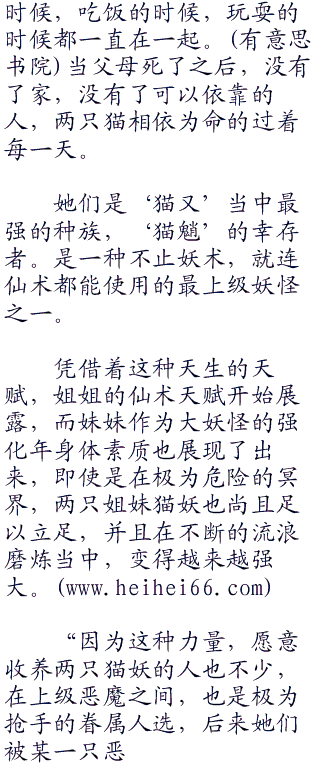 时候，吃饭的时候，玩耍的
时候都一直在一起。(有意思
书院)当父母死了之后，没有
了家，没有了可以依靠的
人，两只猫相依为命的过着
每一天。
她们是‘猫又’当中最
强的种族，‘猫魈’的幸存
者。是一种不止妖术，就连
仙术都能使用的最上级妖怪
之一。
凭借着这种天生的天
赋，姐姐的仙术天赋开始展
露，而妹妹作为大妖怪的强
化年身体素质也展现了出
来，即使是在极为危险的冥
界，两只姐妹猫妖也尚且足
以立足，并且在不断的流浪
磨炼当中，变得越来越强
大。(www.heihei66.com)
“因为这种力量，愿意
收养两只猫妖的人也不少，
在上级恶魔之间，也是极为
抢手的眷属人选，后来她们
被某一只恶